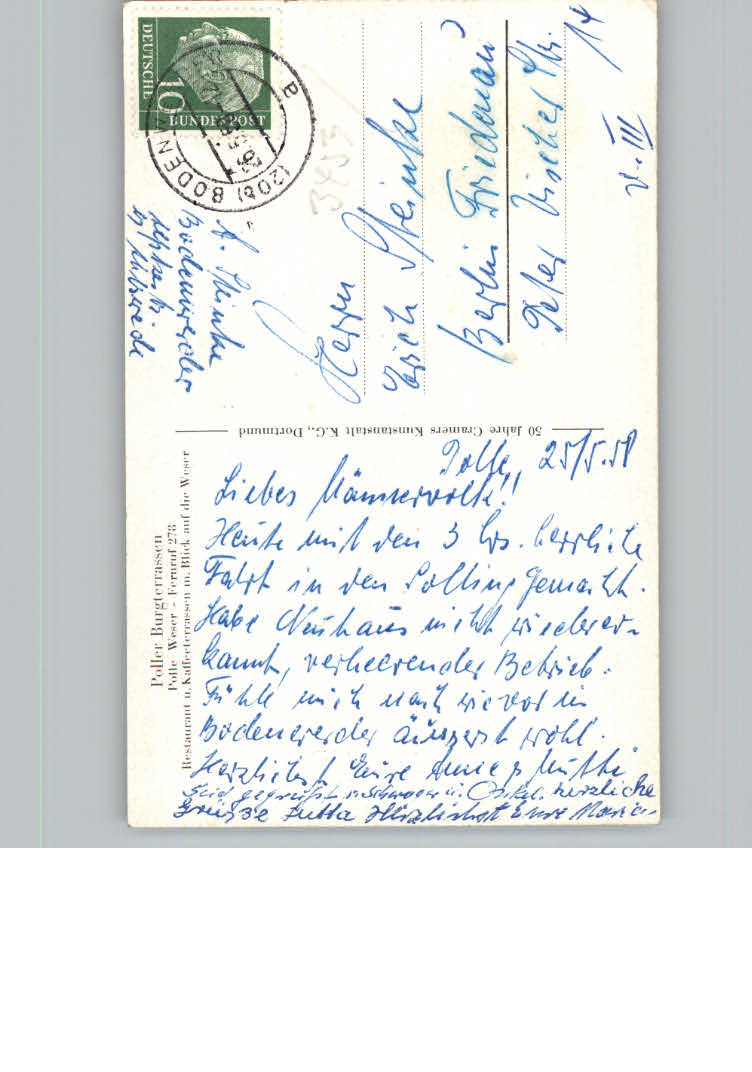 Poller Burgterrassen
Polle Weser - Fernruf 278
Restaurant u. Kaffeeterrassen m. Blick auf die Weser
Polle, 25/5.58
Liebes Männervolk!!
Heute mit den 3 herrliche
Fahrt in den Solling gemacht.
Habe Neuhaus nicht wiederer-
kannt, verheerender Betrieb.
Fühle mich nach wie vor in
Bodenwerder äusserst wohl.
Herzlichst Eure Mutti
Seid gegrüsst v. Schwager u. Onkel. Herzliche
Grüsse Jutta Herzlichst Eure Maria
50 Jahre Cramers Kunstanstalt K.G., Dortmund
DEUTSCHE
BUNDESPOST
10
(20b) BODENW
B
A. Steinke
Bodenwerder
b/
3453
Herrn
Erich Steinke
Berlin Friedenau
Peter Vischer Str. 14
v. III